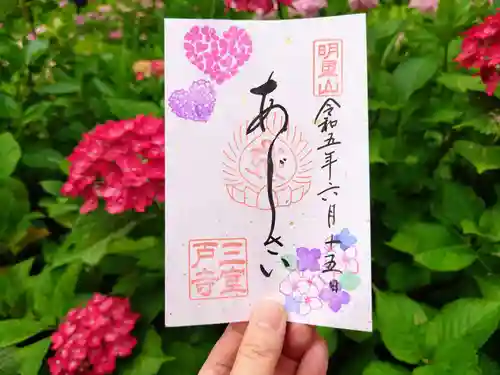 明星山
令和五年六月十五日
あじさい
三室
戸寺